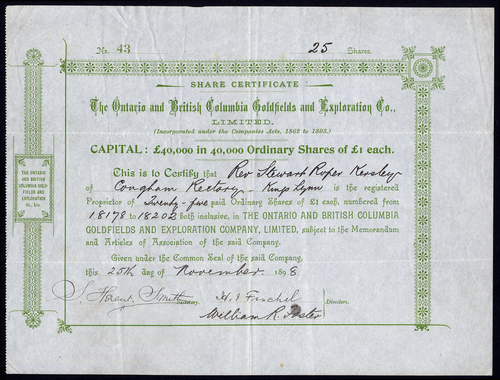 No. 43 25 Shares.
SHARE CERTIFICATE
The Ontario and British Columbia Goldfields and Exploration Co.,
LIMITED.
(Incorporated under the Companies Acts, 1862 to 1893.)
CAPITAL: £40,000 in 40,000 Ordinary Shares of £1 each.
This is to Certify that Rev Stewart Roper Kersley
of Congham Rectory Kings Lynn is the registered
Proprietor of Twenty-five paid Ordinary Shares of £1 each, numbered from
18178 to 18202 both inclusive, in THE ONTARIO AND BRITISH COLUMBIA
GOLDFIELDS AND EXPLORATION COMPANY, LIMITED, subject to the Memorandum
and Articles of Association of the said Company.
Given under the Common Seal of the said Company,
this 25th day of November 1898
S. Smith Secretary. H. Fischel Directors.
William R. Foster
THE ONTARIO
AND BRITISH
COLUMBIA GOLD
FIELDS AND
EXPLORATION
Co., Ltd.